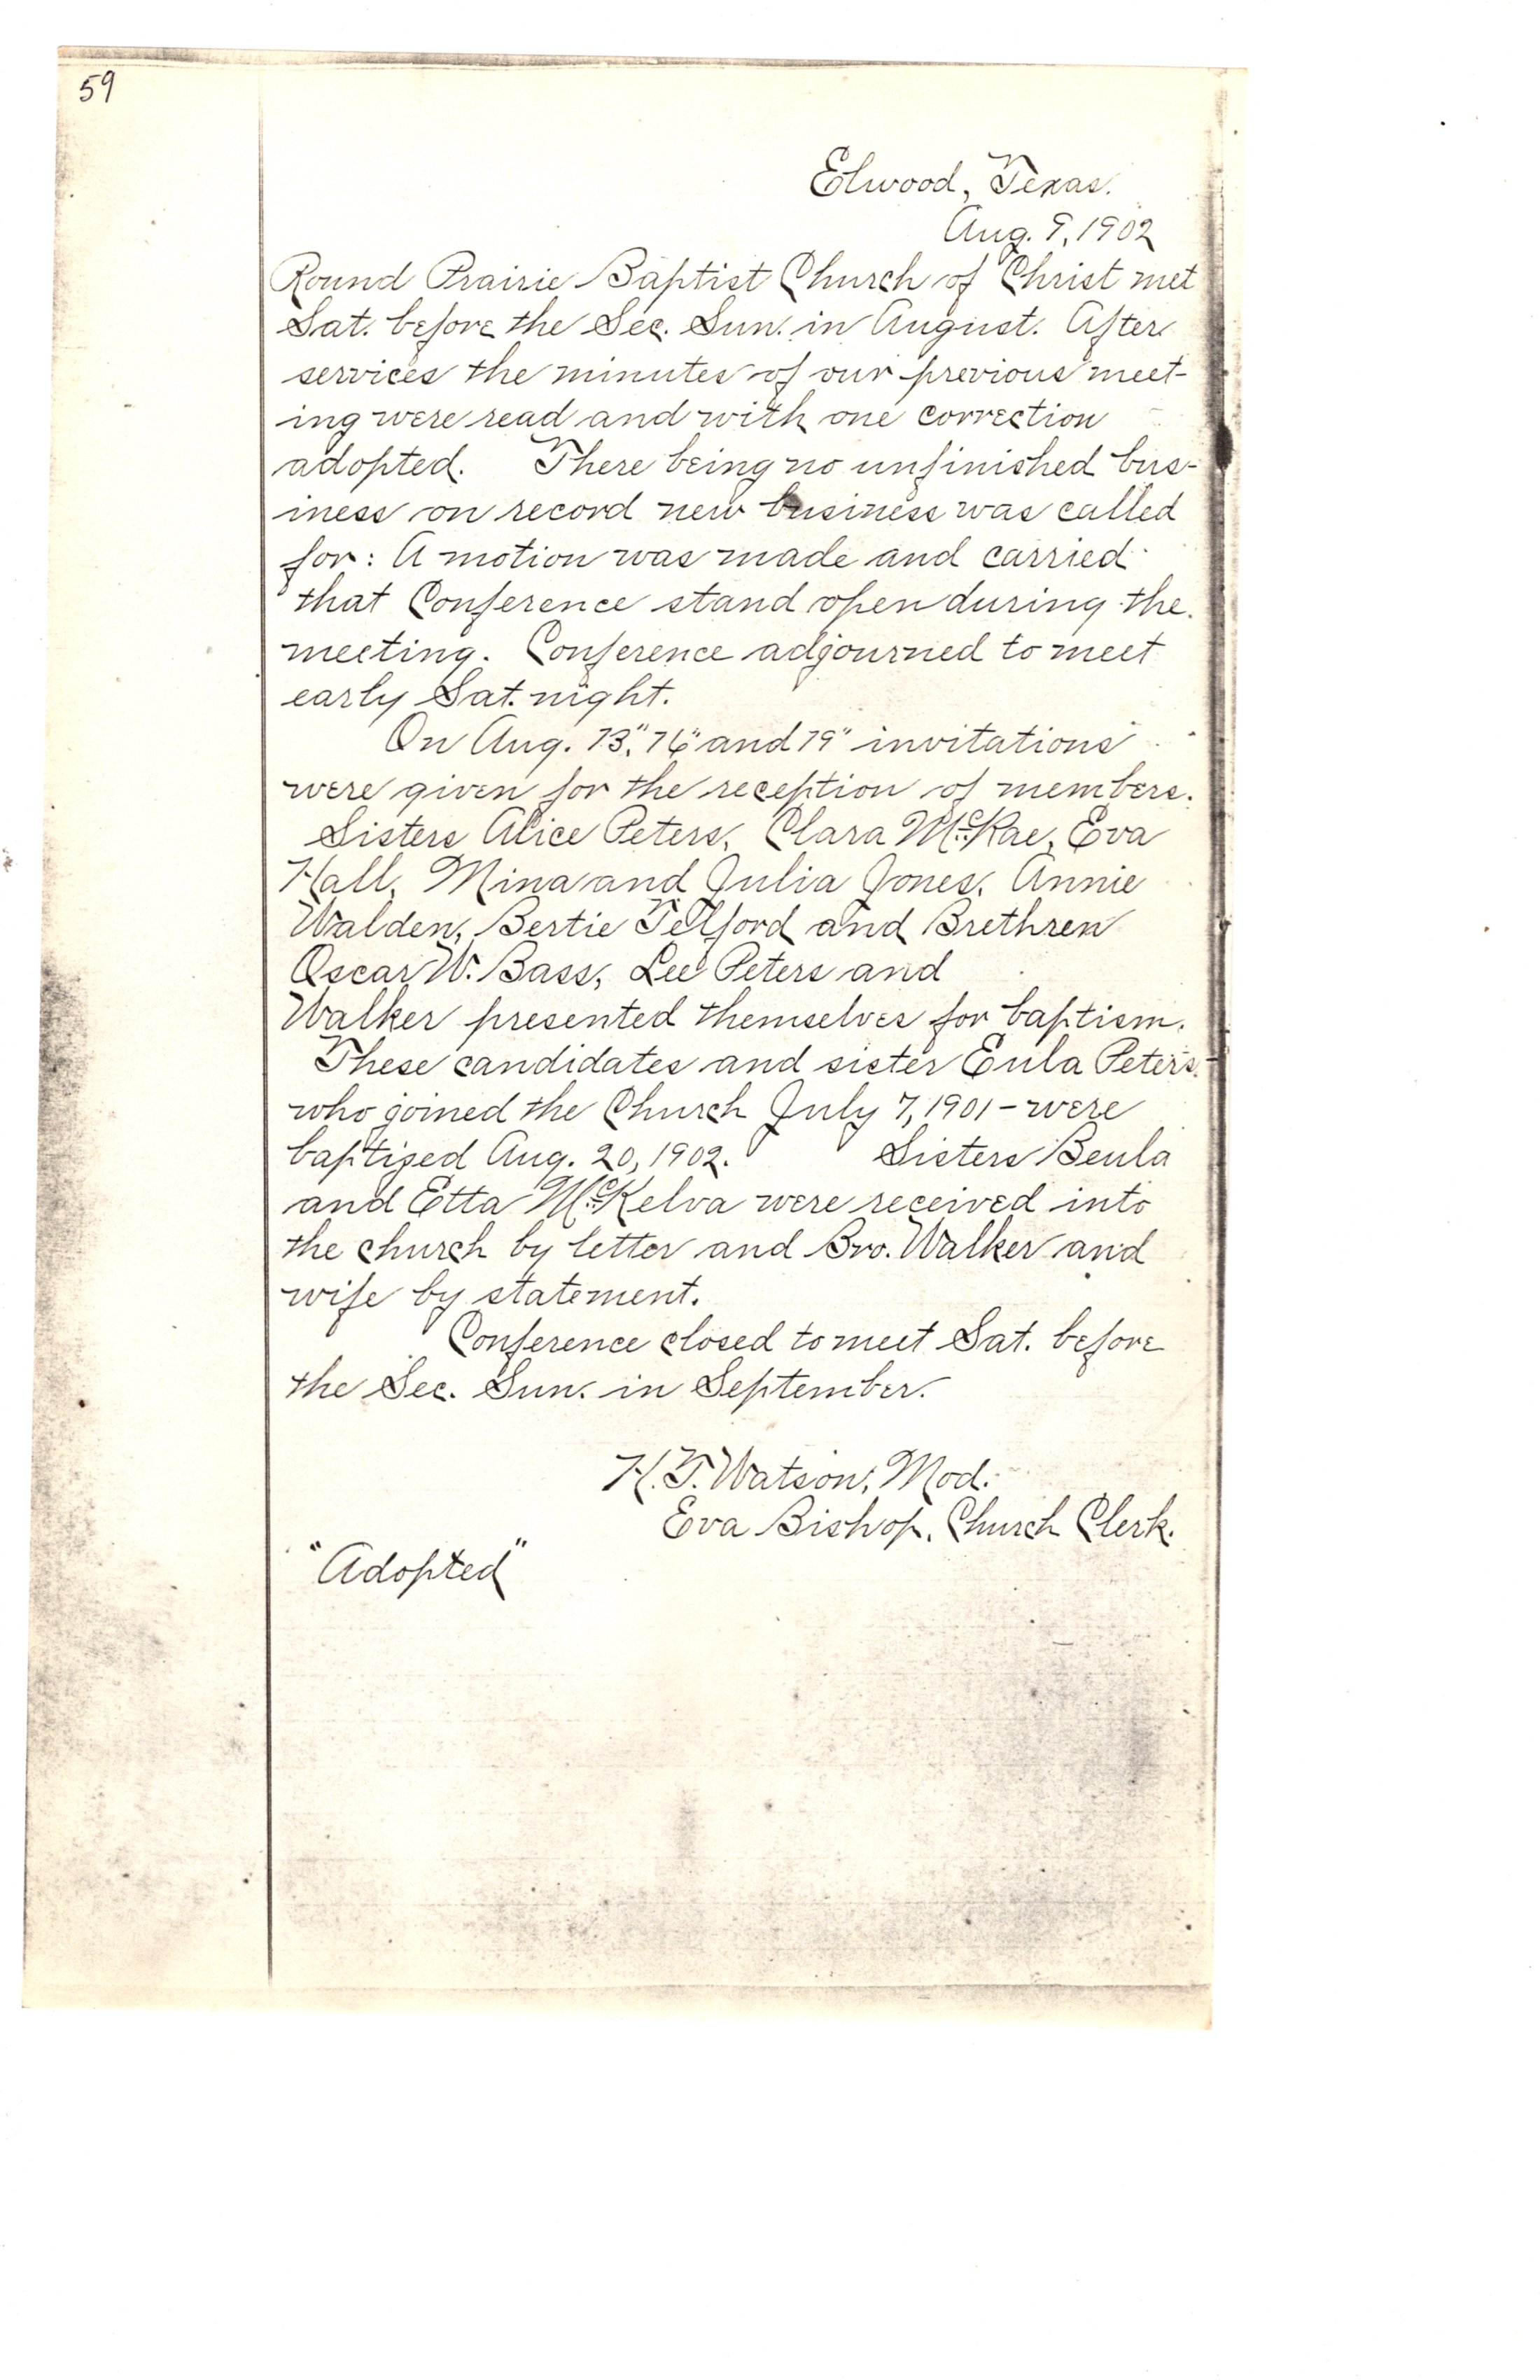 59
Elwood, Texas.
Aug. 9, 1902
Round Prairie Baptist Church of Christ met
Sat. before the Sec. Sun. in August. After
services the minutes of our previous meet-
ing were read and with one correction
adopted. There being no unfinished bus-
iness on record new business was called
for: A motion was made and carried
that Conference stand open during the
meeting. Conference adjourned to meet
early Sat. night.
On Aug. 13", 16" and 19" invitations
were given for the reception of members.
Sisters Alice Peters, Clara McRae, Eva
Hall, Mina and Julia Jones, Annie
Walden, Bertie Telford and Brethren
Oscar W. Bass, Lee Peters and
Walker presented themselves for baptism.
These candidates and sister Eula Peters-
who joined the Church July 7, 1901 - were
baptized Aug. 20, 1902. Sisters Beula
and Etta McKelva were received into
the church by letter and Bro. Walker and
wife by statement.
Conference closed to meet Sat. before
the Sec. Sun. in September.
H. T. Watson, Mod.
Eva Bishop, Church Clerk.
"Adopted"